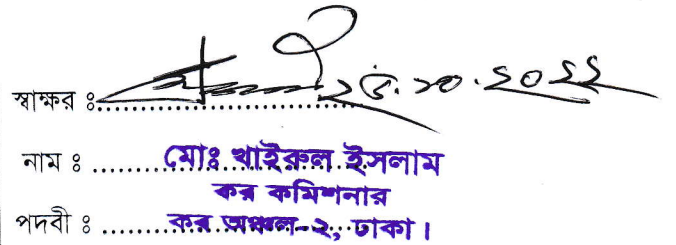 স্বাক্ষর ঃ ........................ ২৫.১০.২০২২
নাম ঃ .....মোঃ খাইরুল ইসলাম
কর কমিশনার
পদবী ঃ .....কর অঞ্চল-২, ঢাকা।